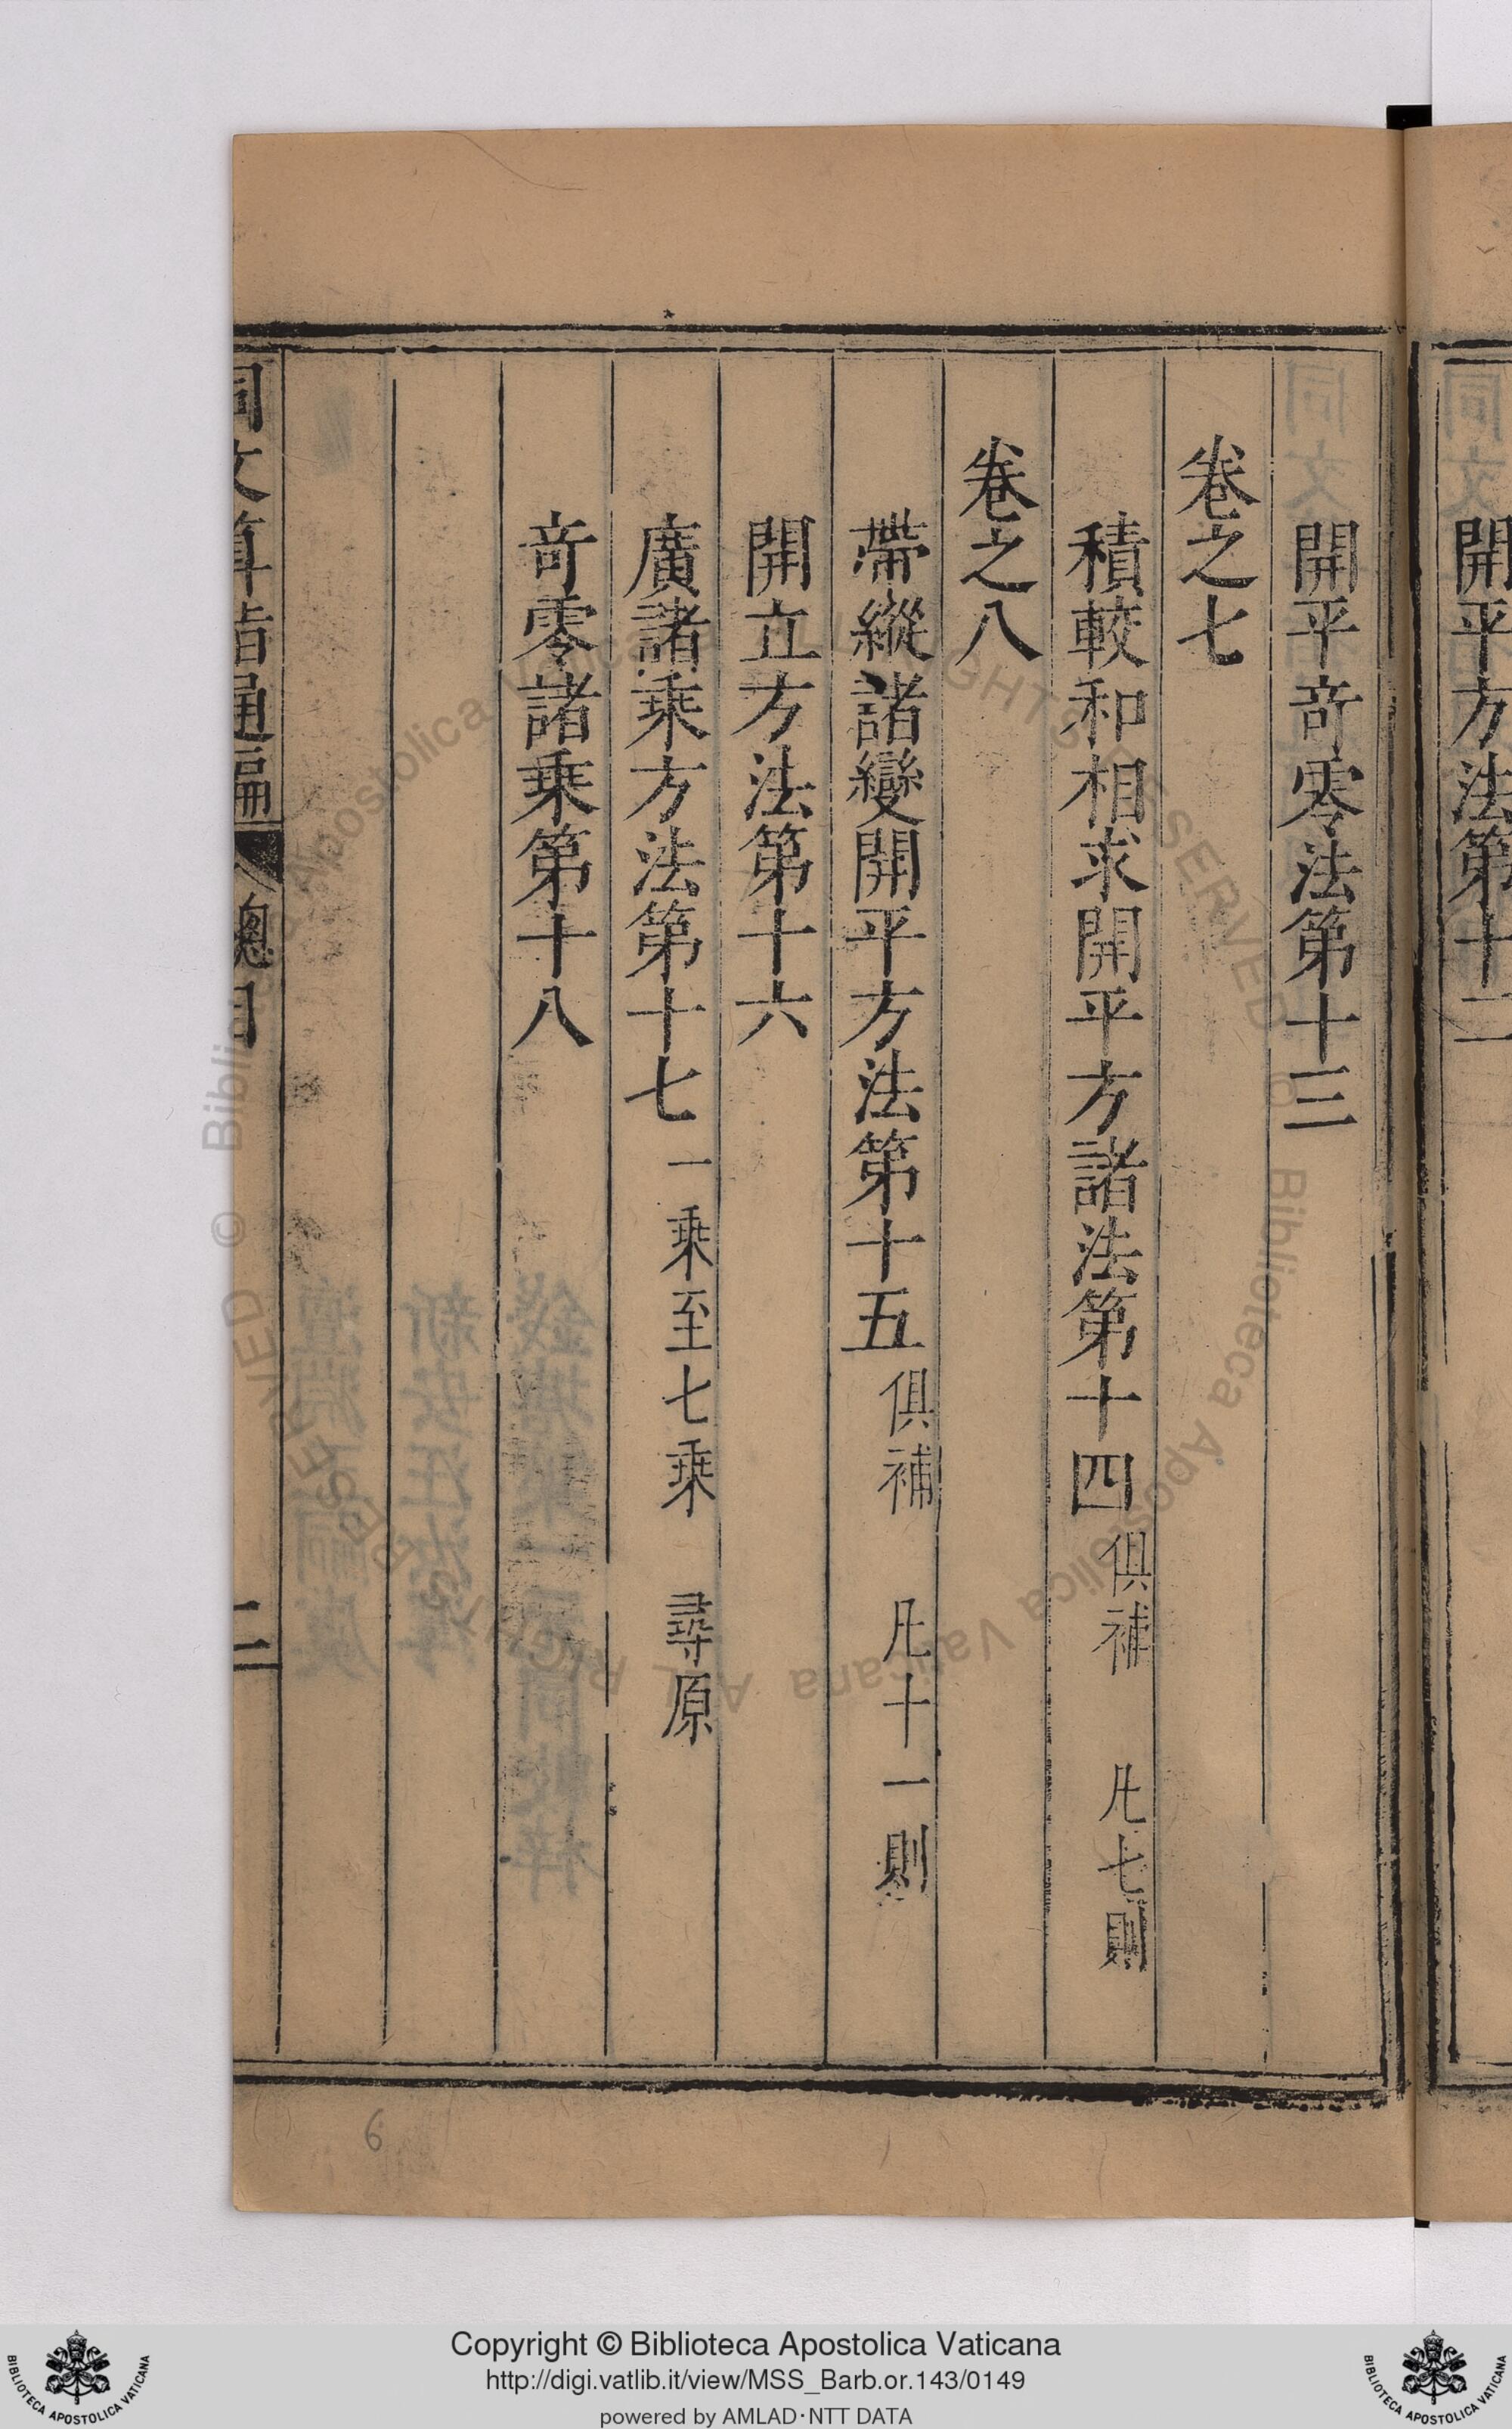 開平方法第十二
開平奇零法第十三
卷之七
積較和相求開平方諸法第十四 俱補 凡七則
卷之八
帶縱諸變開平方法第十五 俱補 凡十一則
開立方法第十六
廣諸乘方法第十七 一乘至七乘 尋原
奇零諸乘第十八
同文算指通編 總目 二
6
Copyright © Biblioteca Apostolica Vaticana
http://digi.vatlib.it/view/MSS_Barb.or.143/0149
powered by AMLAD·NTT DATA
BIBLIOTECA APOSTOLICA VATICANA
BIBLIOTECA APOSTOLICA VATICANA